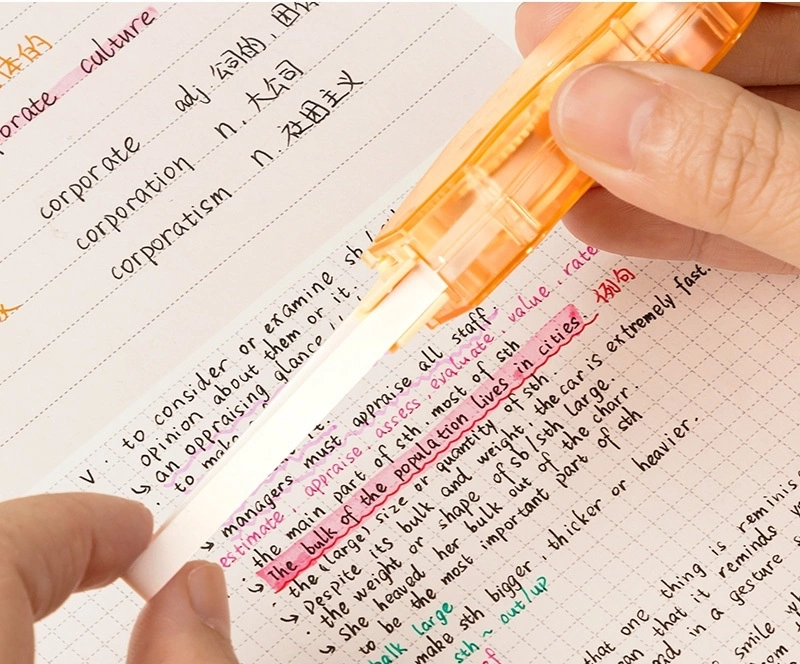 体的
porate culture
corporate adj 公司的, 团体
corporation n. 大公司
corporatism n. 社团主义
v. to consider or examine sb/
opinion about them or it.
an appraising glance
to make
managers must appraise all staff
estimate, appraise, assess, evaluate, value, rate
the main part of sth, most of sth
The bulk of the population lives in cities. 例句
the (large) size or quantity of sth
Despite its bulk and weight, the car is extremely fast.
the weight or shape of sb/sth large.
She heaved her bulk out of the charr.
to be the most important part of sth
bulk large
make sth bigger, thicker or heavier.
sth ~ out/up
that one thing is reminis
that it reminds
in a gesture
smile